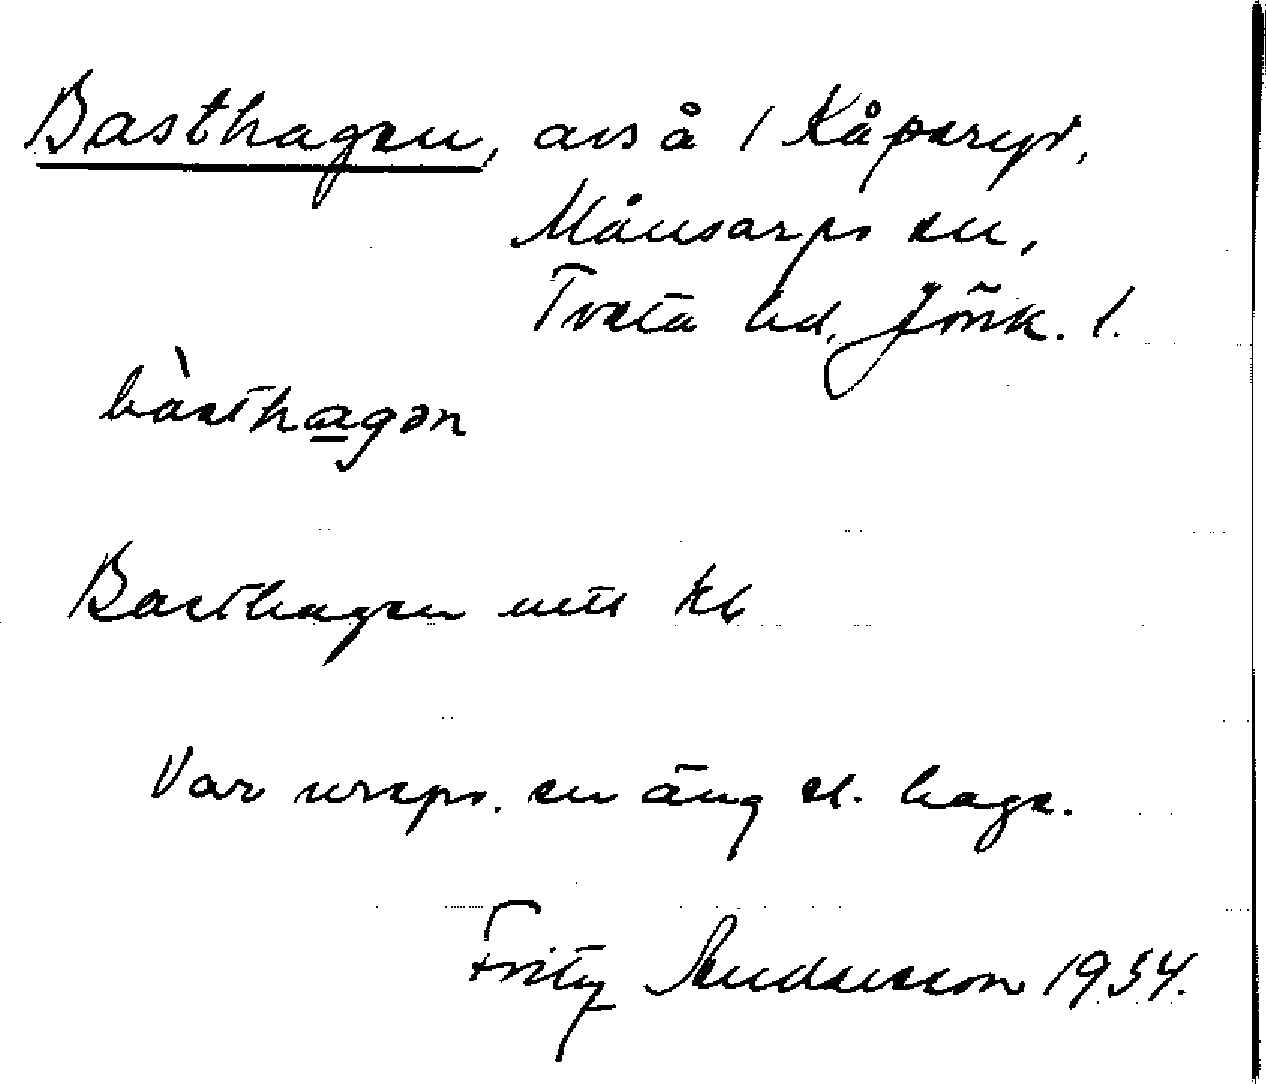 Basthagen, avs å 1 Kåperyd,
Månsarps sn,
Tveta hd, Jönk. l.
bàsthagən
Basthagen mtl kb
Var urspr. en äng el. hage.
Fritz Andersson 1954.